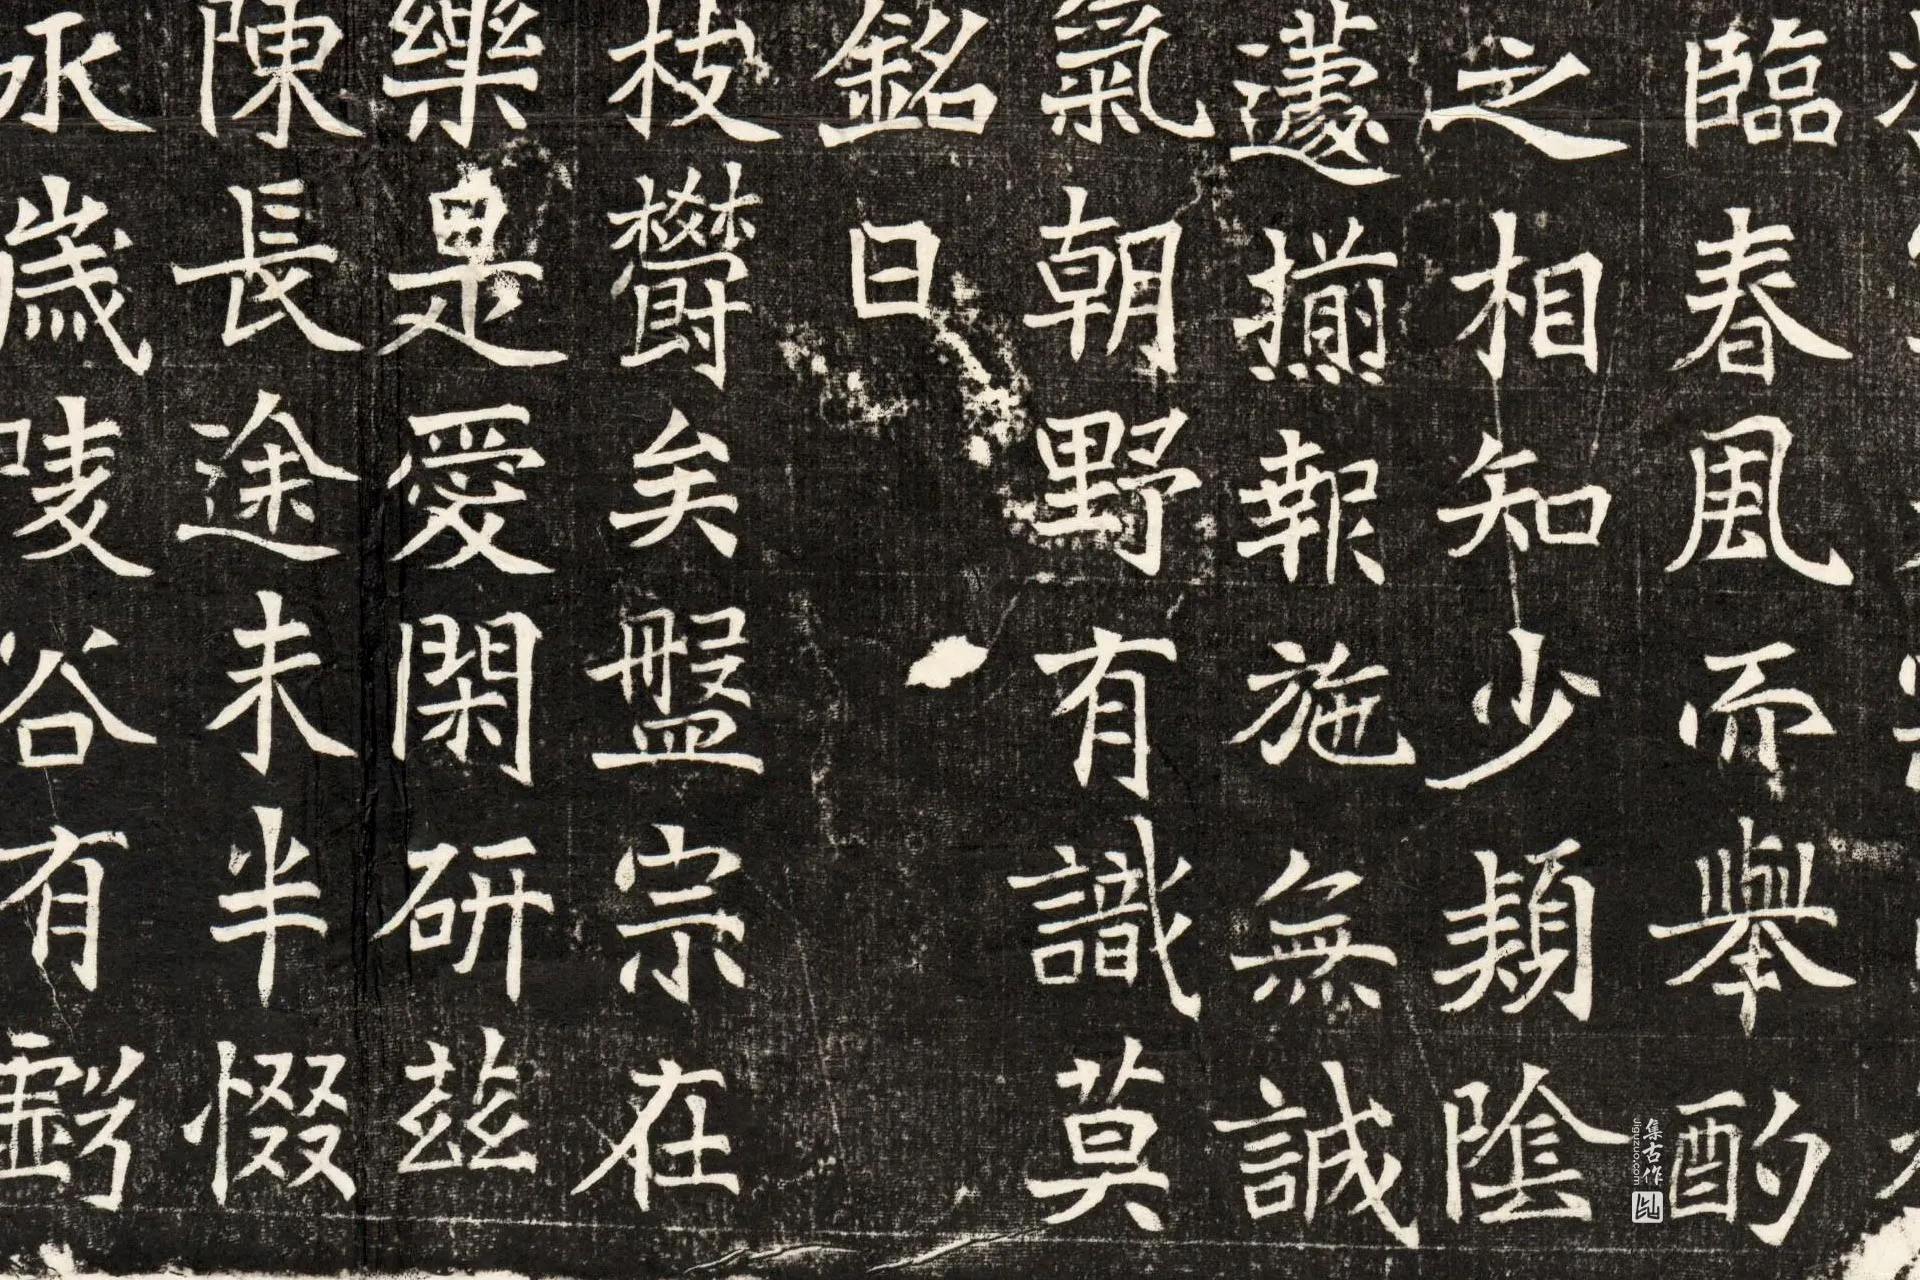 臨春風而舉酌
之相知少頹陰
蘧揃報施無誠
氣朝野有識莫
銘曰
枝欝矣盤宗在
樂是愛閑研茲
陳長途未半惙
歲陵谷有虧
集古作
jiguzuo.com